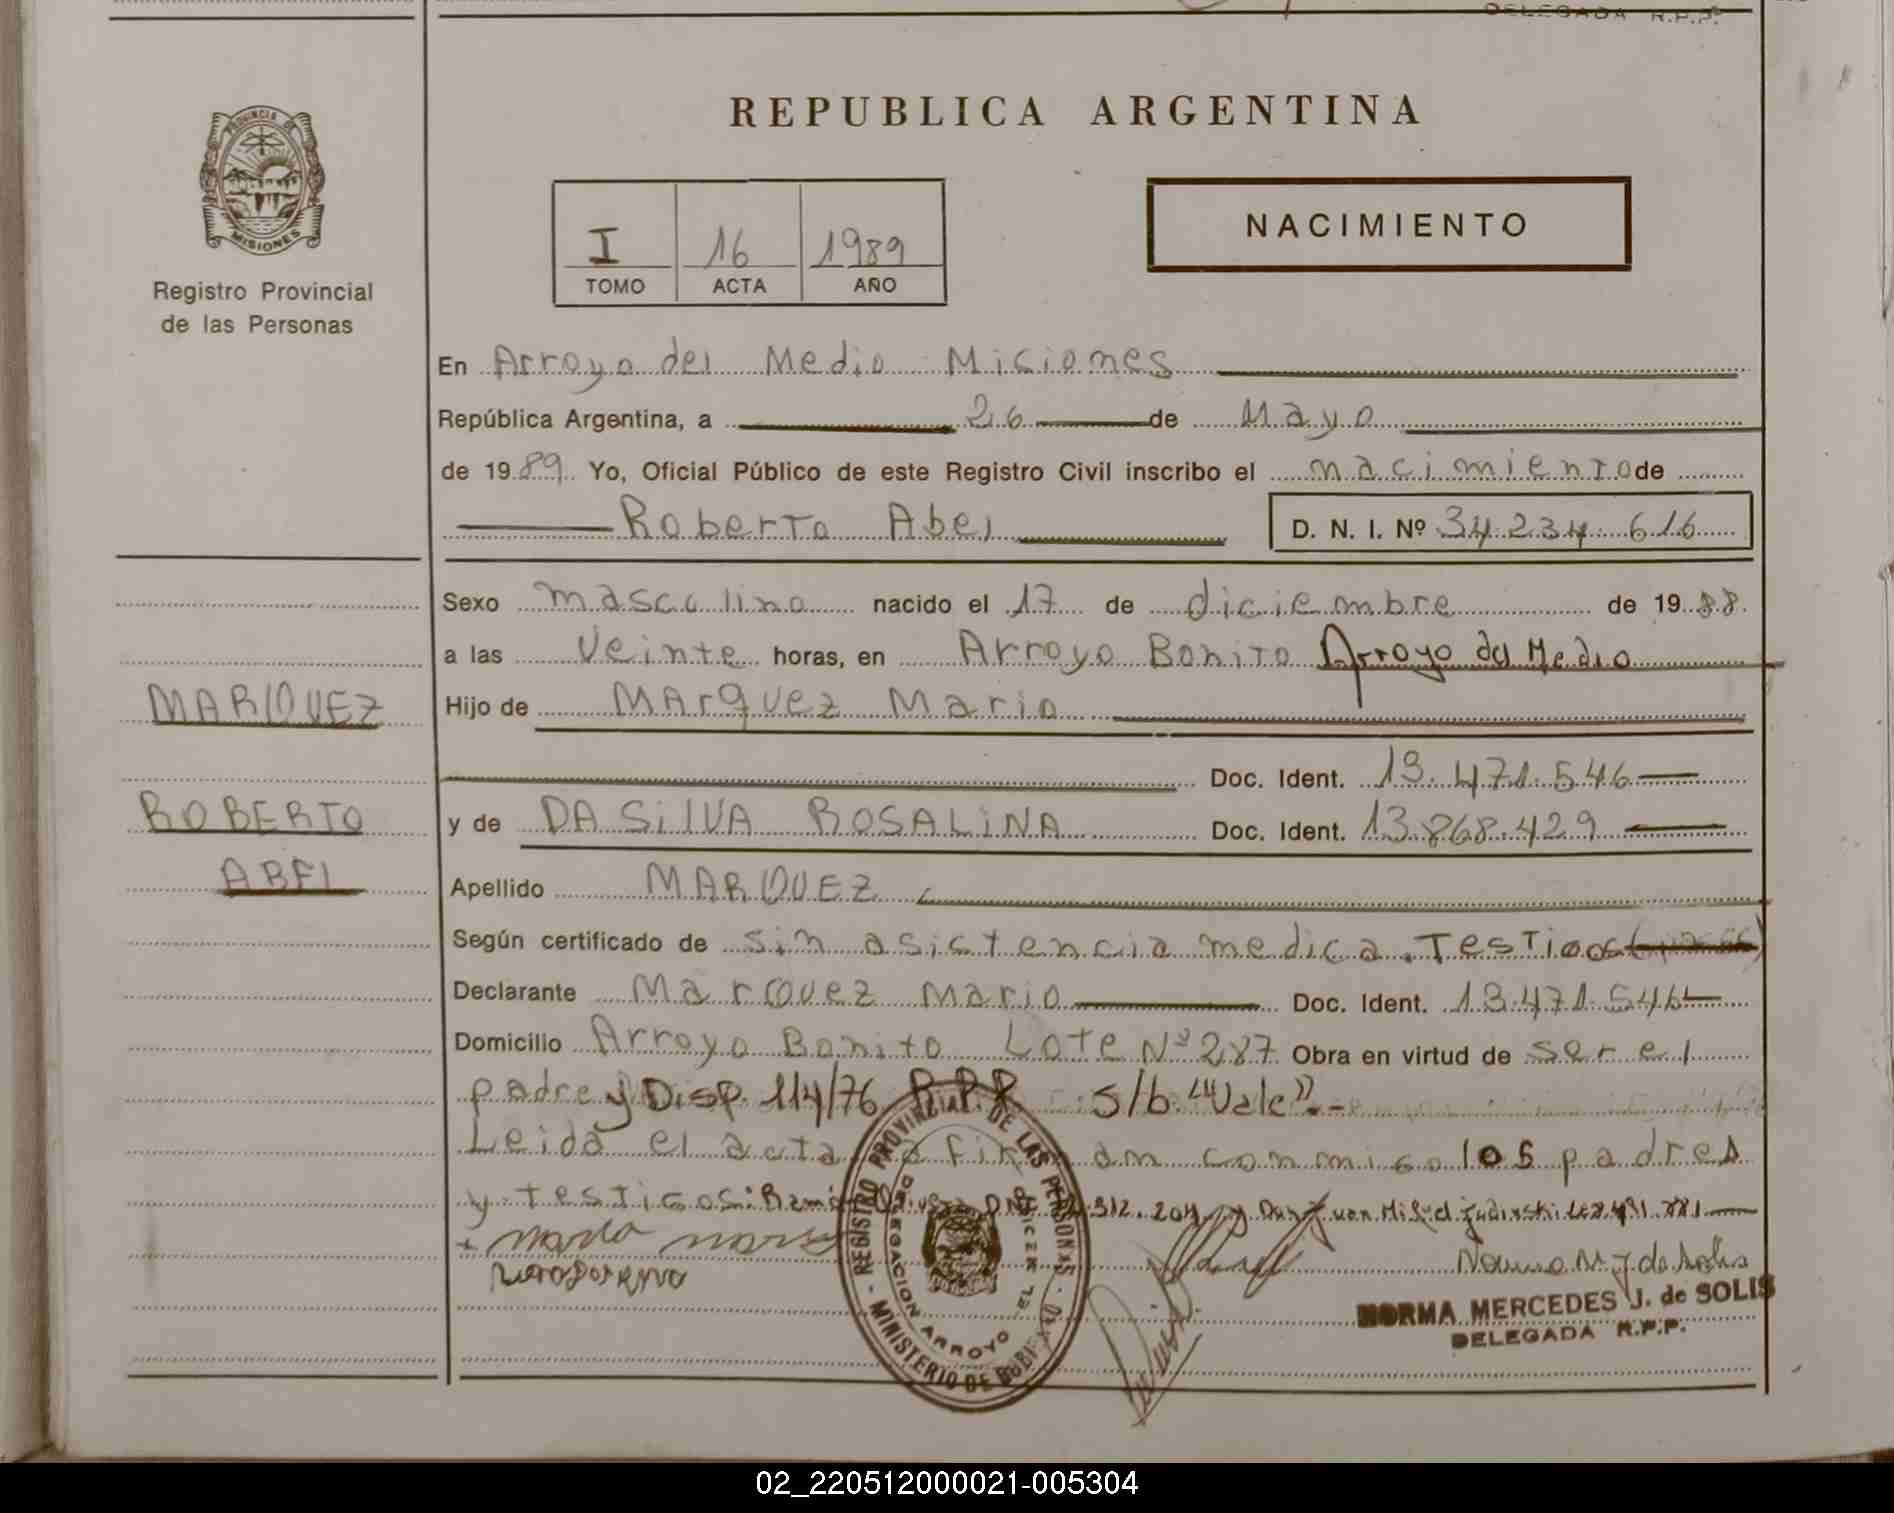 DELEGADA R.P.P.
REPUBLICA ARGENTINA
PROVINCIA DE
MISIONES
Registro Provincial
de las Personas
I 16 1989
TOMO ACTA AÑO
NACIMIENTO
En Arroyo del Medio Miciones
República Argentina, a 26 de Mayo
de 1989 Yo, Oficial Público de este Registro Civil inscribo el nacimiento de
Roberto Abel D. N. I. Nº 34.234.616
Sexo masculino nacido el 17 de diciembre de 1988.
a las Veinte horas, en Arroyo Bonito Arroyo del Medio
MARQUEZ
Hijo de MArquez Mario
Doc. Ident. 13.471.546
ROBERTO
y de DA SiLVA ROSALiNA Doc. Ident. 13.868.429
ABEL
Apellido MARQUEZ
Según certificado de sin asistencia medica. Testigos
Declarante Marquez Mario Doc. Ident. 13.471.546
Domicilio Arroyo Bonito Lote Nº 287 Obra en virtud de ser el
padre y Disp. 114/76 R.P.P. s/b. "Vale".-
Leida el acta firman conmigo los padres
y testigos:
REGISTRO PROVINCIAL DE LAS PERSONAS - MINISTERIO DE GOBIERNO
DELEGACION ARROYO EL
NORMA MERCEDES J. de SOLIS
DELEGADA R.P.P.
02_220512000021-005304